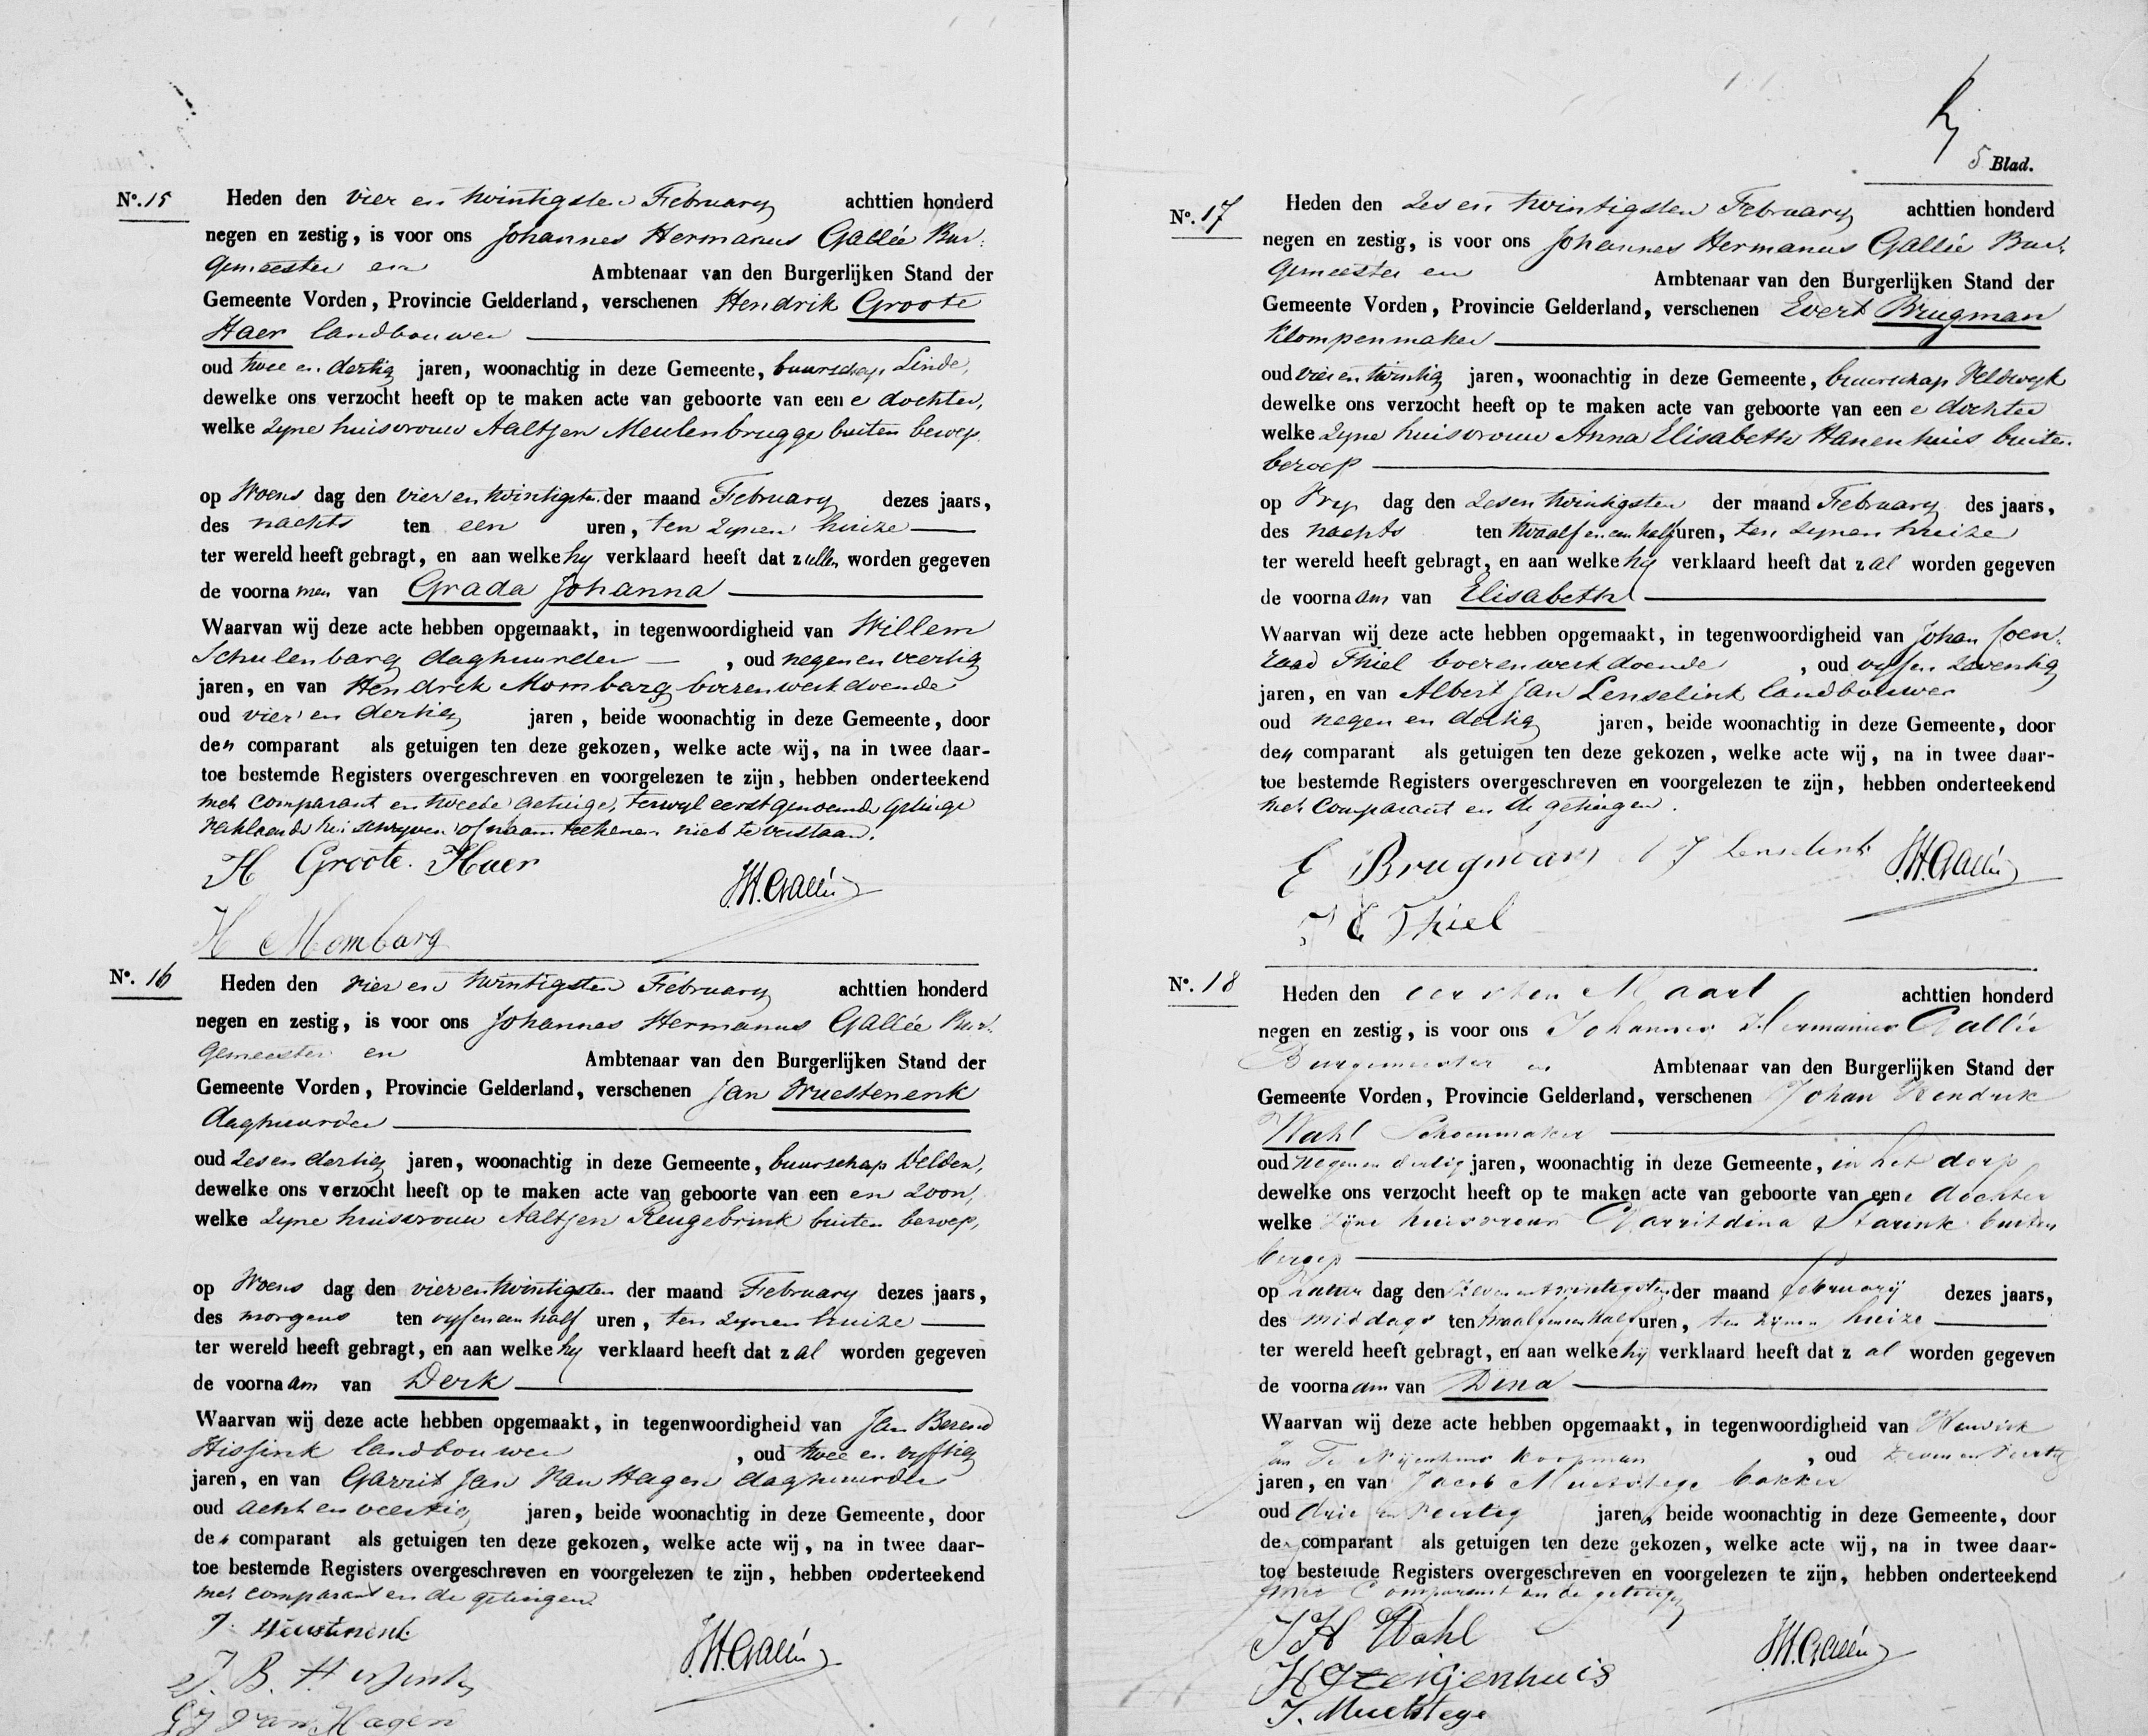 Nº. 15
Heden den vier en twintigsten February achttien honderd
negen en zestig, is voor ons Johannes Hermanus Gallée Bur-
gemeester en Ambtenaar van den Burgerlijken Stand der
Gemeente Vorden, Provincie Gelderland, verschenen Hendrik Groote
Haer landbouwer
oud twee en dertig jaren, woonachtig in deze Gemeente, buurschap Linde,
dewelke ons verzocht heeft op te maken acte van geboorte van eene dochter,
welke zyne huisvrouw Aaltjen Meulenbrugge buiten beroep.
op Woensdag den vier en twintigsten der maand February dezes jaars,
des nachts ten een uren, ten zynen huize
ter wereld heeft gebragt, en aan welke hy verklaard heeft dat zullen worden gegeven
de voornamen van Grada Johanna
Waarvan wij deze acte hebben opgemaakt, in tegenwoordigheid van Willem
Schulenbarg daghuurder, oud negen en veertig
jaren, en van Hendrik Mombarg boerenwerk doende
oud vier en dertig jaren, beide woonachtig in deze Gemeente, door
den comparant als getuigen ten deze gekozen, welke acte wij, na in twee daar-
toe bestemde Registers overgeschreven en voorgelezen te zijn, hebben onderteekend
met comparant en tweede getuige, terwyl eerstgenoemde getuige
verklaarde het schryven of naamteekenen niet te verstaan.
H Groote Haer
J.H. Gallée
H Mombarg
Nº. 16
Heden den vier en twintigsten February achttien honderd
negen en zestig, is voor ons Johannes Hermanus Gallée Bur-
gemeester en Ambtenaar van den Burgerlijken Stand der
Gemeente Vorden, Provincie Gelderland, verschenen Jan Wuestenenk
daghuurder
oud zes en dertig jaren, woonachtig in deze Gemeente, buurschap Delden,
dewelke ons verzocht heeft op te maken acte van geboorte van een en zoon,
welke zyne huisvrouw Aaltjen Reugebrink buiten beroep,
op Woensdag den vier en twintigsten der maand February dezes jaars,
des morgens ten vyf en een half uren, ten zynen huize
ter wereld heeft gebragt, en aan welke hy verklaard heeft dat zal worden gegeven
de voornaam van Derk
Waarvan wij deze acte hebben opgemaakt, in tegenwoordigheid van Jan Berend
Hissink landbouwer, oud twee en vyftig
jaren, en van Garrit Jan Van Hagen daghuurder
oud acht en veertig jaren, beide woonachtig in deze Gemeente, door
den comparant als getuigen ten deze gekozen, welke acte wij, na in twee daar-
toe bestemde Registers overgeschreven en voorgelezen te zijn, hebben onderteekend
met comparant en de getuigen.
J.H. Gallée
GJ Van Hagen
5 Blad.
Nº. 17
Heden den zes en twintigsten February achttien honderd
negen en zestig, is voor ons Johannes Hermanus Gallée Bur-
gemeester en Ambtenaar van den Burgerlijken Stand der
Gemeente Vorden, Provincie Gelderland, verschenen Evert Brugman
Klompenmaker
oud vier en twintig jaren, woonachtig in deze Gemeente, buurschap Veldwyk
dewelke ons verzocht heeft op te maken acte van geboorte van eene dochter
welke zyne huisvrouw Anna Elisabeth Hanenhuis buiten
beroep
op Vrydag den zes en twintigsten der maand February des jaars,
des nachts ten twaalf en een half uren, ten zynen huize
ter wereld heeft gebragt, en aan welke hy verklaard heeft dat zal worden gegeven
de voornaam van Elisabeth
Waarvan wij deze acte hebben opgemaakt, in tegenwoordigheid van Johan Coen-
raad Thiel boerenwerk doende, oud vyf en zeventig
jaren, en van Albert Jan Lenselink landbouwer
oud negen en dertig jaren, beide woonachtig in deze Gemeente, door
den comparant als getuigen ten deze gekozen, welke acte wij, na in twee daar-
toe bestemde Registers overgeschreven en voorgelezen te zijn, hebben onderteekend
met comparant en de getuigen.
E Brugman A J Lenselink J.H. Gallée
J C Thiel
Nº. 18
Heden den eersten Maart achttien honderd
negen en zestig, is voor ons Johannes Hermanus Gallée
Burgemeester en Ambtenaar van den Burgerlijken Stand der
Gemeente Vorden, Provincie Gelderland, verschenen Johan Hendrik
Wahl Schoenmaker
oud negen en dertig jaren, woonachtig in deze Gemeente, in het dorp
dewelke ons verzocht heeft op te maken acte van geboorte van eene dochter
welke zijne huisvrouw Garritdina Starink buiten
beroep
op Zaturdag den zeven en twintigsten der maand februarij dezes jaars,
des middags ten twaalf en een half uren, ten zijnen huize
ter wereld heeft gebragt, en aan welke hij verklaard heeft dat zal worden gegeven
de voornaam van Dina
Waarvan wij deze acte hebben opgemaakt, in tegenwoordigheid van Hendrik
Jan Te Nijenhuis koopman, oud zeven en veertig
jaren, en van Jacob Muetstege bakker
oud drie en veertig jaren, beide woonachtig in deze Gemeente, door
den comparant als getuigen ten deze gekozen, welke acte wij, na in twee daar-
toe bestemde Registers overgeschreven en voorgelezen te zijn, hebben onderteekend
met Comparant en de getuigen
J H Wahl
J.H. Gallée
J. Muetstege